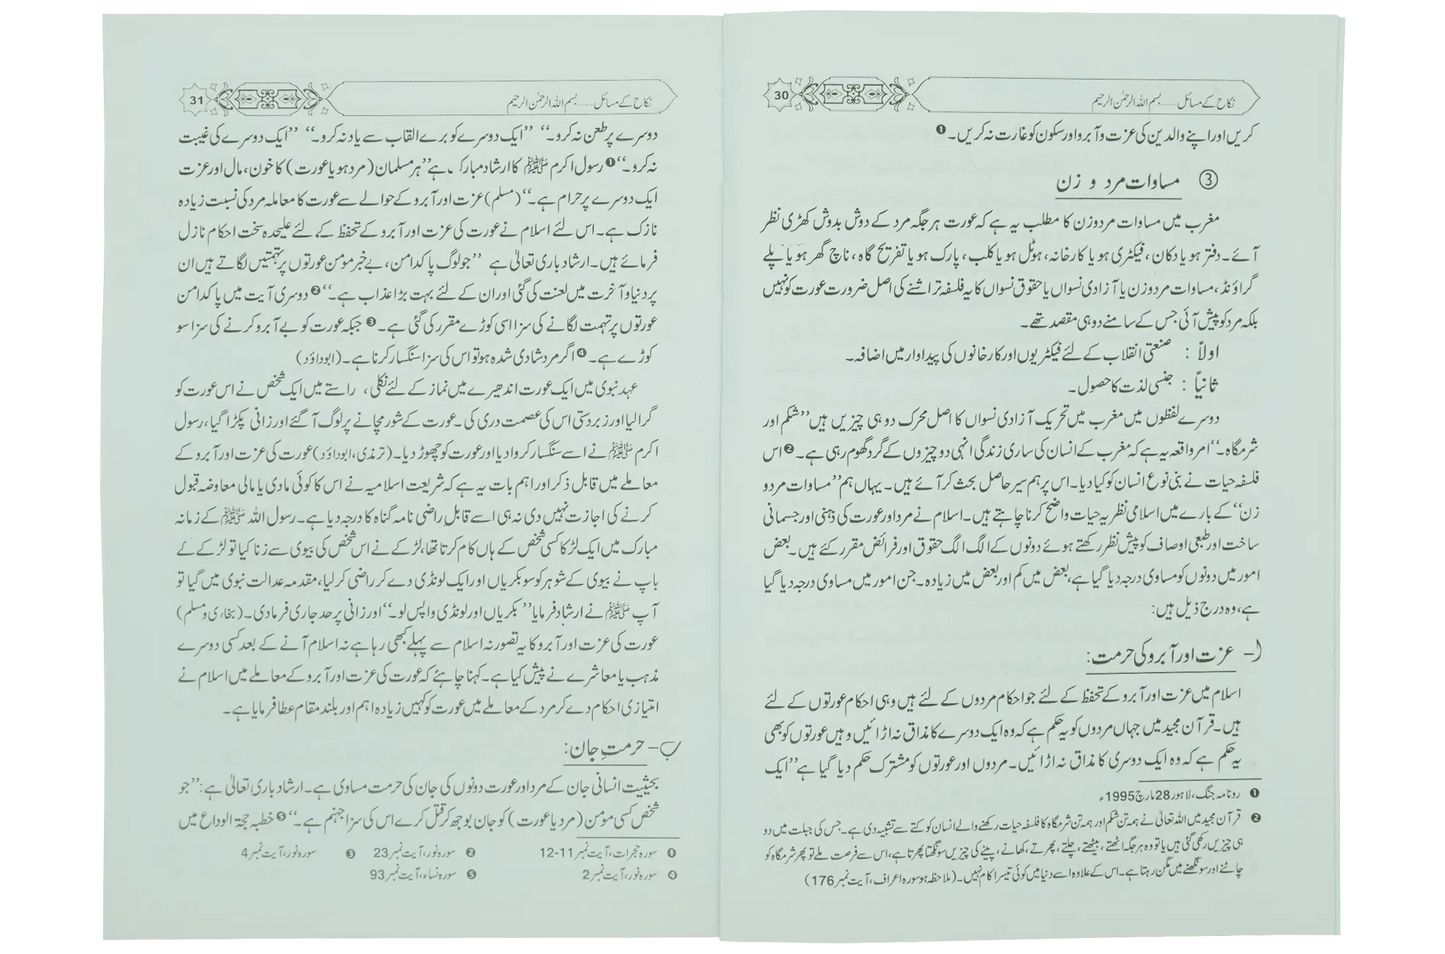 30
نکاح کے مسائل ..... بسم اللہ الرحمٰن الرحیم
کریں اور اپنے والدین کی عزت و آبرو اور سکون کو غارت نہ کریں۔❶
③ مساوات مرد و زن
مغرب میں مساوات مرد و زن کا مطلب یہ ہے کہ عورت ہر جگہ مرد کے دوش بدوش کھڑی نظر
آئے۔ دفتر ہو یا دکان، فیکٹری ہو یا کارخانہ، ہوٹل ہو یا کلب، پارک ہو یا تفریح گاہ، ناچ گھر ہو یا پلے
گراؤنڈ، مساوات مرد و زن یا آزادی نسواں یا حقوق نسواں کا یہ فلسفہ تراشنے کی اصل ضرورت عورت کو نہیں
بلکہ مرد کو پیش آئی جس کے سامنے دو ہی مقصد تھے۔
اولاً : صنعتی انقلاب کے لئے فیکٹریوں اور کارخانوں کی پیداوار میں اضافہ۔
ثانیاً : جنسی لذت کا حصول۔
دوسرے لفظوں میں مغرب میں تحریک آزادی نسواں کا اصل محرک دو ہی چیزیں ہیں ’’شکم اور
شرمگاہ۔‘‘ امر واقعہ یہ ہے کہ مغرب کے انسان کی ساری زندگی انہی دو چیزوں کے گرد گھوم رہی ہے۔❷ اس
فلسفہ حیات نے بنی نوع انسان کو کیا دیا۔ اس پر ہم سیر حاصل بحث کر آئے ہیں۔ یہاں ہم ’’مساوات مرد و
زن‘‘ کے بارے میں اسلامی نظریہ حیات واضح کرنا چاہتے ہیں۔ اسلام نے مرد اور عورت کی ذہنی اور جسمانی
ساخت اور طبعی اوصاف کو پیش نظر رکھتے ہوئے دونوں کے الگ الگ حقوق اور فرائض مقرر کئے ہیں۔ بعض
امور میں دونوں کو مساوی درجہ دیا گیا ہے، بعض میں کم اور بعض میں زیادہ۔ جن امور میں مساوی درجہ دیا گیا
ہے، وہ درج ذیل ہیں:
(ا۔ عزت اور آبرو کی حرمت:
اسلام میں عزت اور آبرو کے تحفظ کے لئے جو احکام مردوں کے لئے ہیں وہی احکام عورتوں کے لئے
ہیں۔ قرآن مجید میں جہاں مردوں کو یہ حکم ہے کہ وہ ایک دوسرے کا مذاق نہ اڑائیں وہیں عورتوں کو بھی
یہ حکم ہے کہ وہ ایک دوسری کا مذاق نہ اڑائیں۔ مردوں اور عورتوں کو مشترک حکم دیا گیا ہے ’’ایک
❶ روزنامہ جنگ، لاہور 28 مارچ 1995ء
❷ قرآن مجید میں اللہ تعالیٰ نے ہمہ تن شکم اور ہمہ تن شرمگاہ کا فلسفہ حیات رکھنے والے انسان کو کتے سے تشبیہ دی ہے۔ جس کی جبلت میں دو
ہی چیزیں رکھی گئی ہیں یا تو وہ ہر جگہ اٹھتے، بیٹھتے، چلتے، پھرتے، کھانے، پینے کی چیزیں سونگھتا پھرتا ہے، اس سے فرصت ملے تو پھر شرمگاہ کو
چاٹنے اور سونگھنے میں مگن رہتا ہے۔ اس کے علاوہ اسے دنیا میں کوئی تیسرا کام نہیں۔ (ملاحظہ ہو سورہ اعراف، آیت نمبر 176)
31
نکاح کے مسائل ..... بسم اللہ الرحمٰن الرحیم
دوسرے پر طعن نہ کرو۔‘‘ ’’ایک دوسرے کو برے القاب سے یاد نہ کرو۔‘‘ ’’ایک دوسرے کی غیبت
نہ کرو۔‘‘❶ رسول اکرم ﷺ کا ارشاد مبارک ہے ’’ہر مسلمان (مرد ہو یا عورت) کا خون، مال اور عزت
ایک دوسرے پر حرام ہے۔‘‘ (مسلم) عزت اور آبرو کے حوالے سے عورت کا معاملہ مرد کی نسبت زیادہ
نازک ہے۔ اس لئے اسلام نے عورت کی عزت اور آبرو کے تحفظ کے لئے علیحدہ سخت احکام نازل
فرمائے ہیں۔ ارشاد باری تعالیٰ ہے ’’جو لوگ پاکدامن، بے خبر مومن عورتوں پر تہمتیں لگاتے ہیں ان
پر دنیا و آخرت میں لعنت کی گئی اور ان کے لئے بہت بڑا عذاب ہے۔‘‘❷ دوسری آیت میں پاکدامن
عورتوں پر تہمت لگانے کی سزا اسی کوڑے مقرر کی گئی ہے۔❸ جبکہ عورت کو بے آبرو کرنے کی سزا سو
کوڑے ہے۔❹ اگر مرد شادی شدہ ہو تو اس کی سزا سنگسار کرنا ہے۔ (ابوداؤد)
عہد نبوی میں ایک عورت اندھیرے میں نماز کے لئے نکلی، راستے میں ایک شخص نے اس عورت کو
گرا لیا اور زبردستی اس کی عصمت دری کی۔ عورت کے شور مچانے پر لوگ آ گئے اور زانی پکڑا گیا، رسول
اکرم ﷺ نے اسے سنگسار کروا دیا اور عورت کو چھوڑ دیا۔ (ترمذی، ابوداؤد) عورت کی عزت اور آبرو کے
معاملے میں قابل ذکر اور اہم بات یہ ہے کہ شریعت اسلامیہ نے اس کا کوئی مادی یا مالی معاوضہ قبول
کرنے کی اجازت نہیں دی نہ ہی اسے قابل راضی نامہ گناہ کا درجہ دیا ہے۔ رسول اللہ ﷺ کے زمانہ
مبارک میں ایک لڑکا کسی شخص کے ہاں کام کرتا تھا، لڑکے نے اس شخص کی بیوی سے زنا کیا تو لڑکے کے
باپ نے بیوی کے شوہر کو سو بکریاں اور ایک لونڈی دے کر راضی کر لیا، مقدمہ عدالت نبوی میں گیا تو
آپ ﷺ نے ارشاد فرمایا ’’بکریاں اور لونڈی واپس لو۔‘‘ اور زانی پر حد جاری فرما دی۔ (بخاری و مسلم)
عورت کی عزت اور آبرو کا یہ تصور نہ اسلام سے پہلے کبھی رہا ہے نہ اسلام آنے کے بعد کسی دوسرے
مذہب یا معاشرے نے پیش کیا ہے۔ کہنا چاہئے کہ عورت کی عزت اور آبرو کے معاملے میں اسلام نے
امتیازی احکام دے کر مرد کے معاملے میں عورت کو کہیں زیادہ اہم اور بلند مقام عطا فرمایا ہے۔
ب۔ حرمتِ جان:
بحیثیت انسانی جان کے مرد اور عورت دونوں کی جان کی حرمت مساوی ہے۔ ارشاد باری تعالیٰ ہے: ’’جو
شخص کسی مؤمن (مرد یا عورت) کو جان بوجھ کر قتل کرے اس کی سزا جہنم ہے۔‘‘❺ خطبہ حجۃ الوداع میں
❶ سورہ حجرات، آیت نمبر 11-12 ❷ سورہ نور، آیت نمبر 23 ❸ سورہ نور، آیت نمبر 4
❹ سورہ نور، آیت نمبر 2 ❺ سورہ نساء، آیت نمبر 93